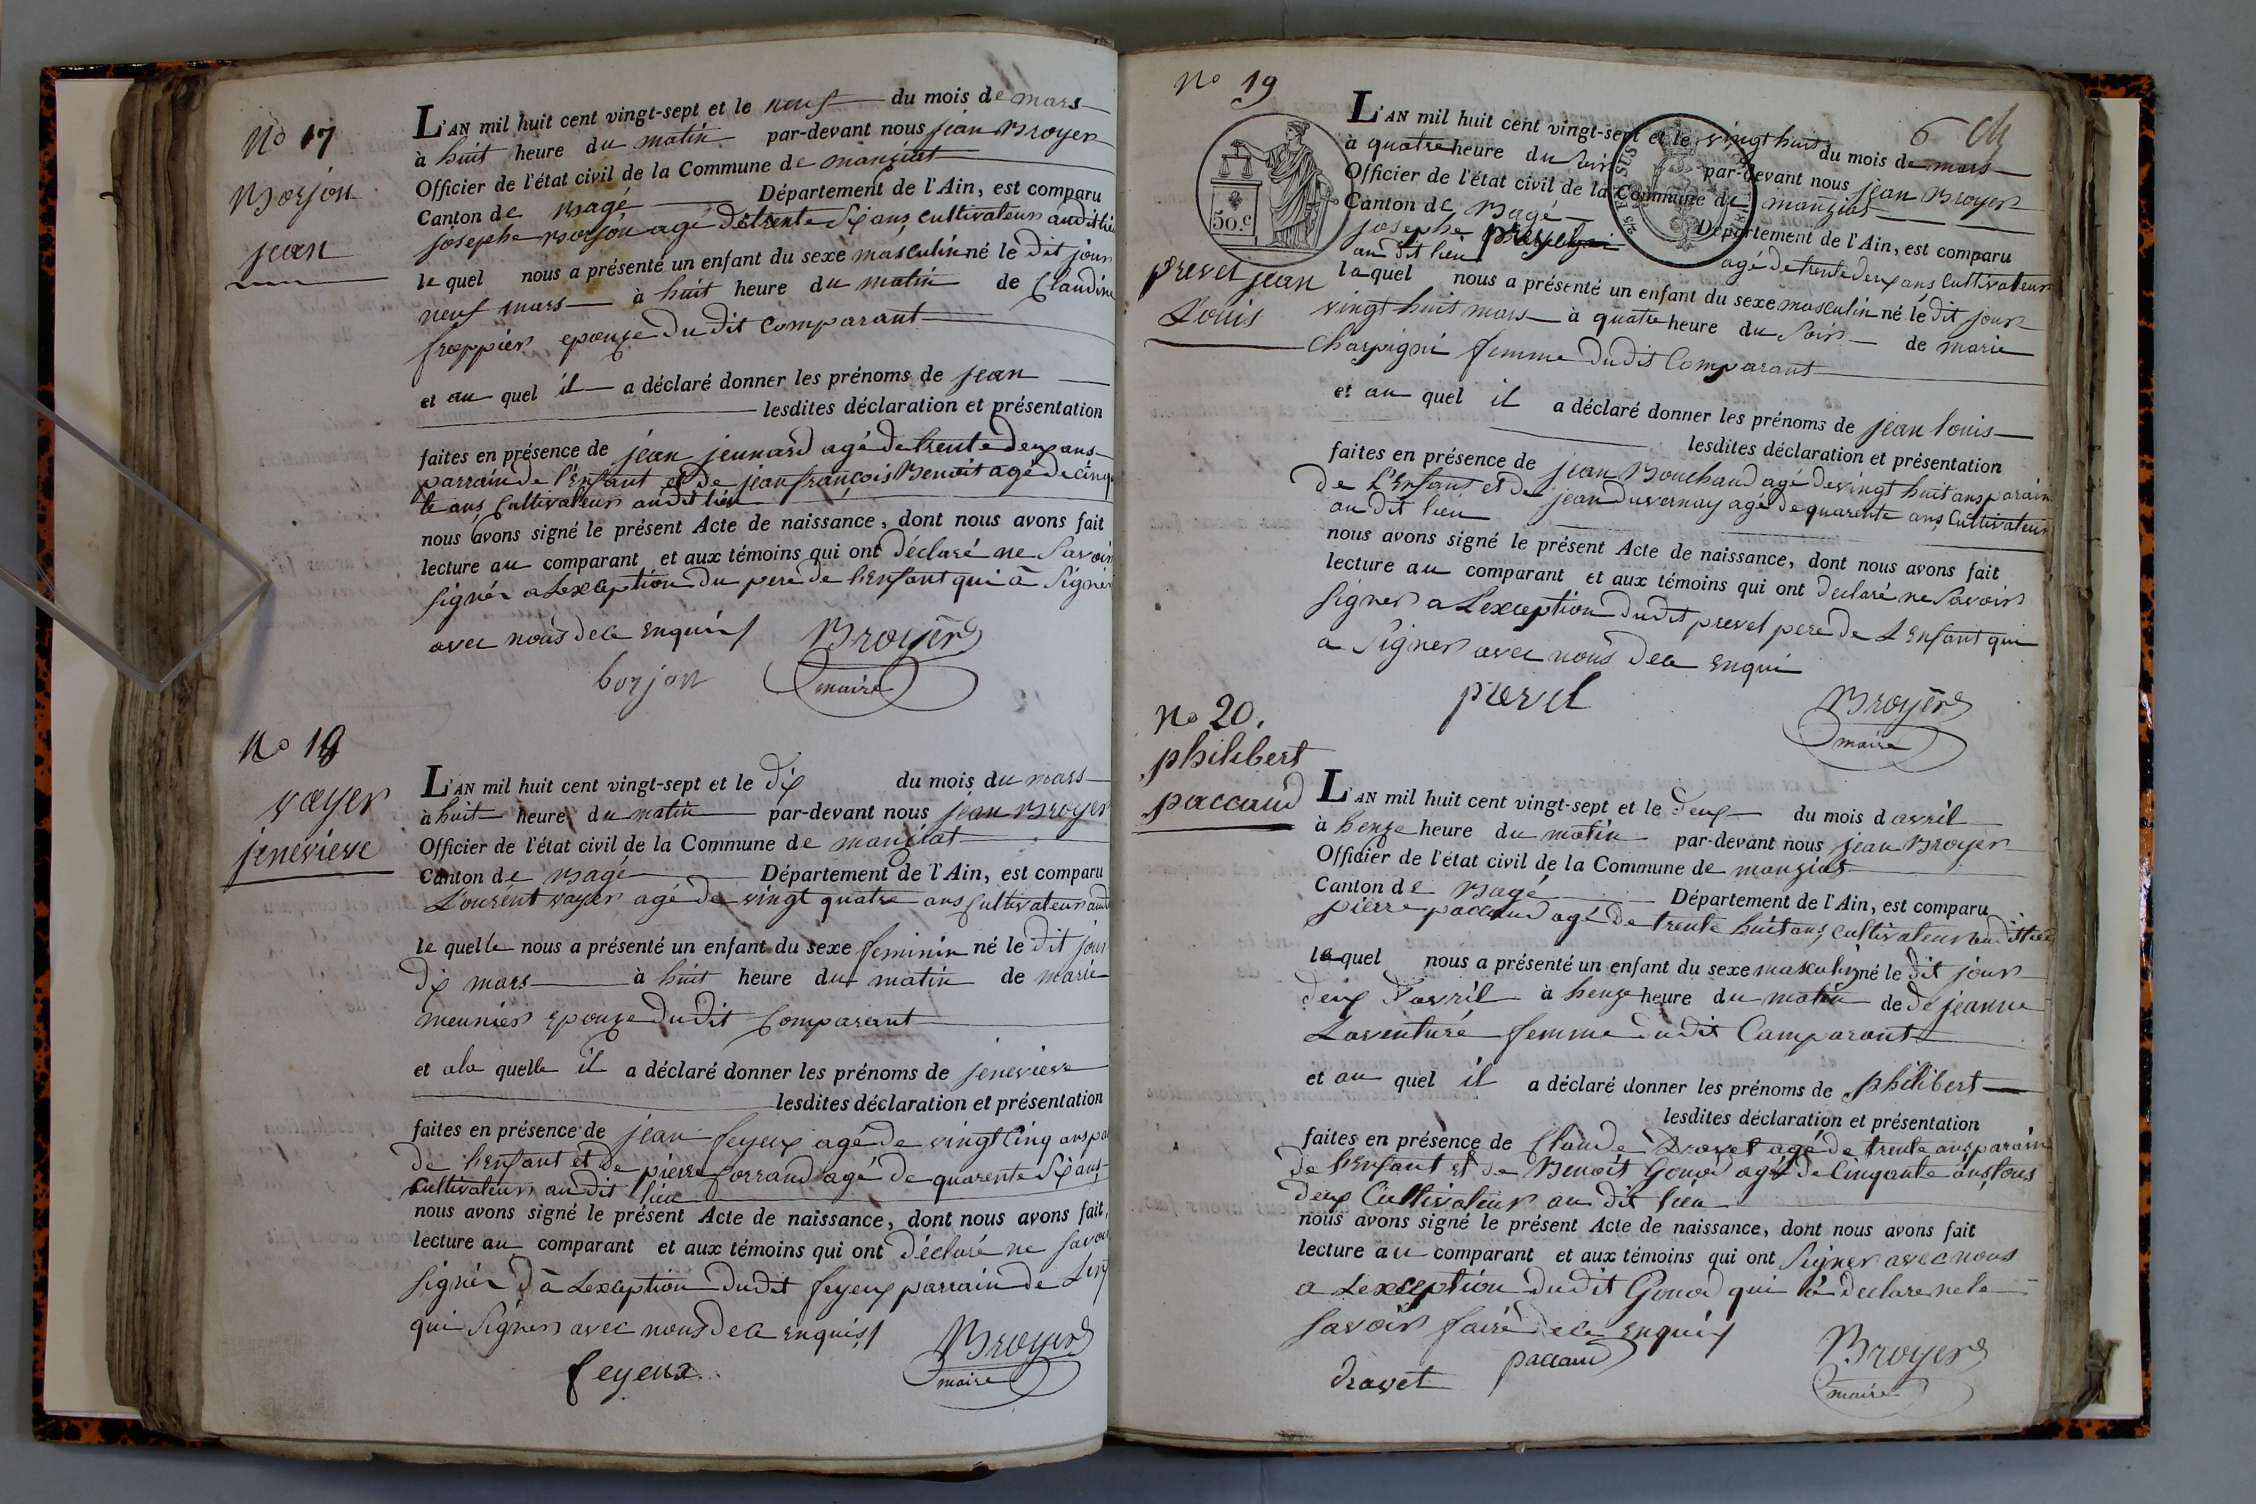 No 17
Borjon
jean
L'AN mil huit cent vingt-sept et le neuf du mois de mars
à huit heure du matin par-devant nous jean Broyer
Officier de l'état civil de la Commune de manziat
Canton de Bagé Département de l'Ain, est comparu
josephe Borjon agé de trente six ans cultivateur audit lieu
le quel nous a présenté un enfant du sexe masculin né le dit jour
neuf mars à huit heure du matin de Claudine
froppier epouze du dit comparant
et au quel il a déclaré donner les prénoms de jean
lesdites déclaration et présentation
faites en présence de jean jeunard agé de trente deux ans
parrain de l'enfant et de jean françois Benoit agé de cinq
te ans cultivateur au dit lieu
nous avons signé le présent Acte de naissance, dont nous avons fait
lecture au comparant et aux témoins qui ont déclaré ne savoir
signér a Lexception du pere de l'enfant qui à signer
avec nous de ce enquis
Broyer
borjon maire
No 18
vayer
jenevieve
L'AN mil huit cent vingt-sept et le dix du mois du mars
à huit heure du matin par-devant nous jean Broyer
Officier de l'état civil de la Commune de manziat
Canton de Bagé Département de l'Ain, est comparu
Lourent vayer agé de vingt quatre ans cultivateur aud
le quelle nous a présenté un enfant du sexe feminin né le dit jour
dix mars à huit heure du matin de marie
meunier epouze du dit comparant
et a la quelle il a déclaré donner les prénoms de jenevieve
lesdites déclaration et présentation
faites en présence de jean feyeux agé de vingt cinq ans pa
de l'enfant et de pierre forrand agé de quarente six ans
cultivateur au dit lieu
nous avons signé le présent Acte de naissance, dont nous avons fait
lecture au comparant et aux témoins qui ont déclaré ne savoir
signér d'à Lexception dudit feyeux parrain de Lenf
qui signer avec nous de ce enquis
Broyer
feyeux maire
No 19
6
50.c
prevel jean
Louis
L'AN mil huit cent vingt-sept et le vingt huit du mois de mars
à quatre heure du soir par-devant nous jean Broyer
Officier de l'état civil de la Commune de manziat
Canton de Bagé Département de l'Ain, est comparu
josephe prevel agé de trente deux ans cultivateur
au dit lieu
lequel nous a présenté un enfant du sexe masculin né le dit jour
vingt huit mars à quatre heure du soir de marie
charpigni femme du dit comparant
et au quel il a déclaré donner les prénoms de jean louis
lesdites déclaration et présentation
faites en présence de jean Bouchaud agé de vingt huit ans parain
de L'enfant et de jean duvernay agé de quarente ans cultivateur
au dit lieu
nous avons signé le présent Acte de naissance, dont nous avons fait
lecture au comparant et aux témoins qui ont declaré ne savoir
signer a Lexception dudit prevel pere de Lenfant qui
a signer avec nous de ce enqui
prevel Broyer
maire
No 20.
philibert
paccaud
L'AN mil huit cent vingt-sept et le deux du mois d avril
à henze heure du matin par-devant nous jean Broyer
Officier de l'état civil de la Commune de manziat
Canton de Bagé Département de l'Ain, est comparu
pierre paccaud agé de trente huit ans, cultivateur audit lieu
lequel nous a présenté un enfant du sexe masculin né le dit jour
deux d'avril à henze heure du matin de de jeanne
Laventuré femme du dit Comparant
et au quel il a déclaré donner les prénoms de philibert
lesdites déclaration et présentation
faites en présence de Claude Dravet agé de trente ans parain
de l'enfant et de Benoit Gonod agé de Cinqante ans tous
deux Cultivateur au dit lieu
nous avons signé le présent Acte de naissance, dont nous avons fait
lecture au comparant et aux témoins qui ont signer avec nous
a Lexception du dit Gonod qui à declare ne le
savoir faire de ce enquis
dravet paccaud Broyer
maire